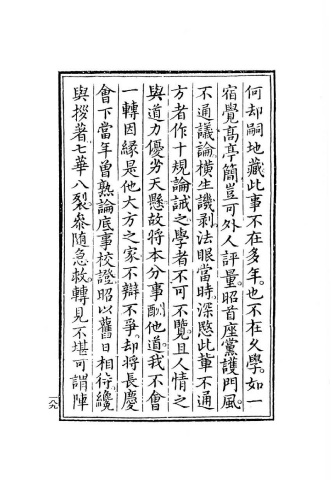 何却嗣地藏此事不在多年。也不在久學。如一
宿覺高亭簡豈可外人評量。昭首座黨護門風。
不通議論橫生譏剝。法眼當時。深愍此輩不通
方者作十規論誡之學者不可不覽。且人情之
與道力優劣天懸故將本分事酬他道。我不會
一轉因緣是他大方之家不辯不爭。却將長慶
會下當年曾熟論底事校證昭以舊日相衒纔
與拶著七華八裂。叅隨急救轉見不堪可謂陣
一八九